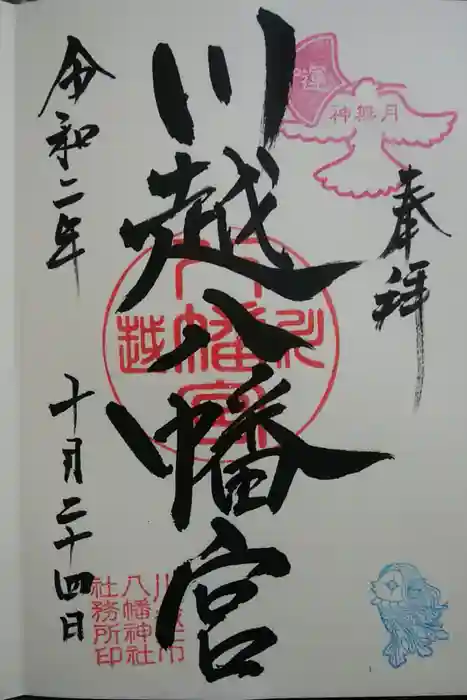 運
神無月
奉拝
川越八幡宮
川越
八幡宮
令和二年
十月二十四日
川越市
八幡神社
社務所印